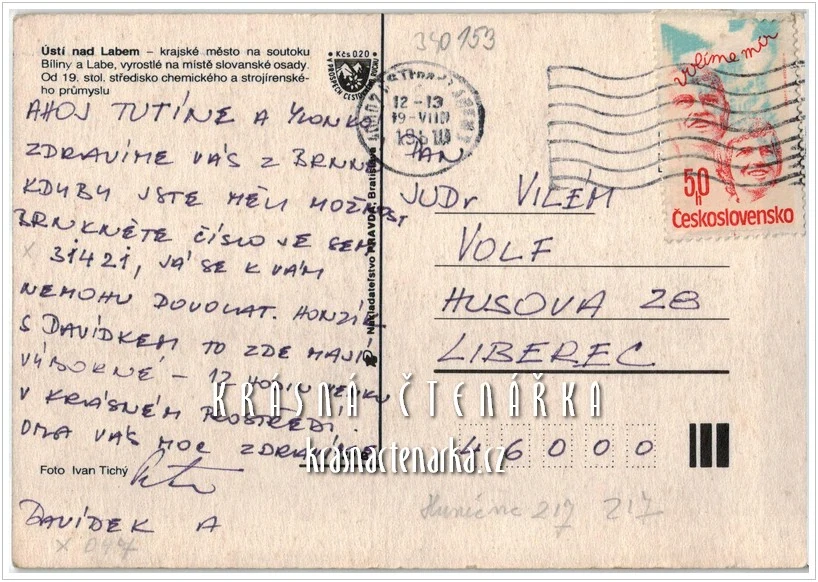 Ústí nad Labem – krajské město na soutoku
Bíliny a Labe, vyrostlé na místě slovanské osady.
Od 19. stol. středisko chemického a strojírenské-
ho průmyslu
Kčs 0,20
AHOJ TUTÍNE A YLONKO
ZDRAVÍME VÁS Z BRNNA
KDYBY JSTE MĚLI MOŽNOST
BRNKNĚTE ČÍSLO JE SEM
31421, JÁ SE K VÁM
NEMOHU DOVOLAT. HONZÍK
S DAVÍDKEM TO ZDE MAJÍ
VÝBORNÉ – 12 HODIN VENKU
V KRÁSNÉM PROSTŘEDÍ.
OBA VÁS MOC ZDRAVÍME
Foto Ivan Tichý
DAVÍDEK A
x 044
Nakladatelství PRAVDA, Bratislava
340 153
12–13
19–VIII
volíme mír
50 h
Československo
PAN
JUDr VILÉM
VOLF
HUSOVA 28
LIBEREC
46000
217 217
KRÁSNÁ ČTENÁŘKA
krasnactenarka.cz